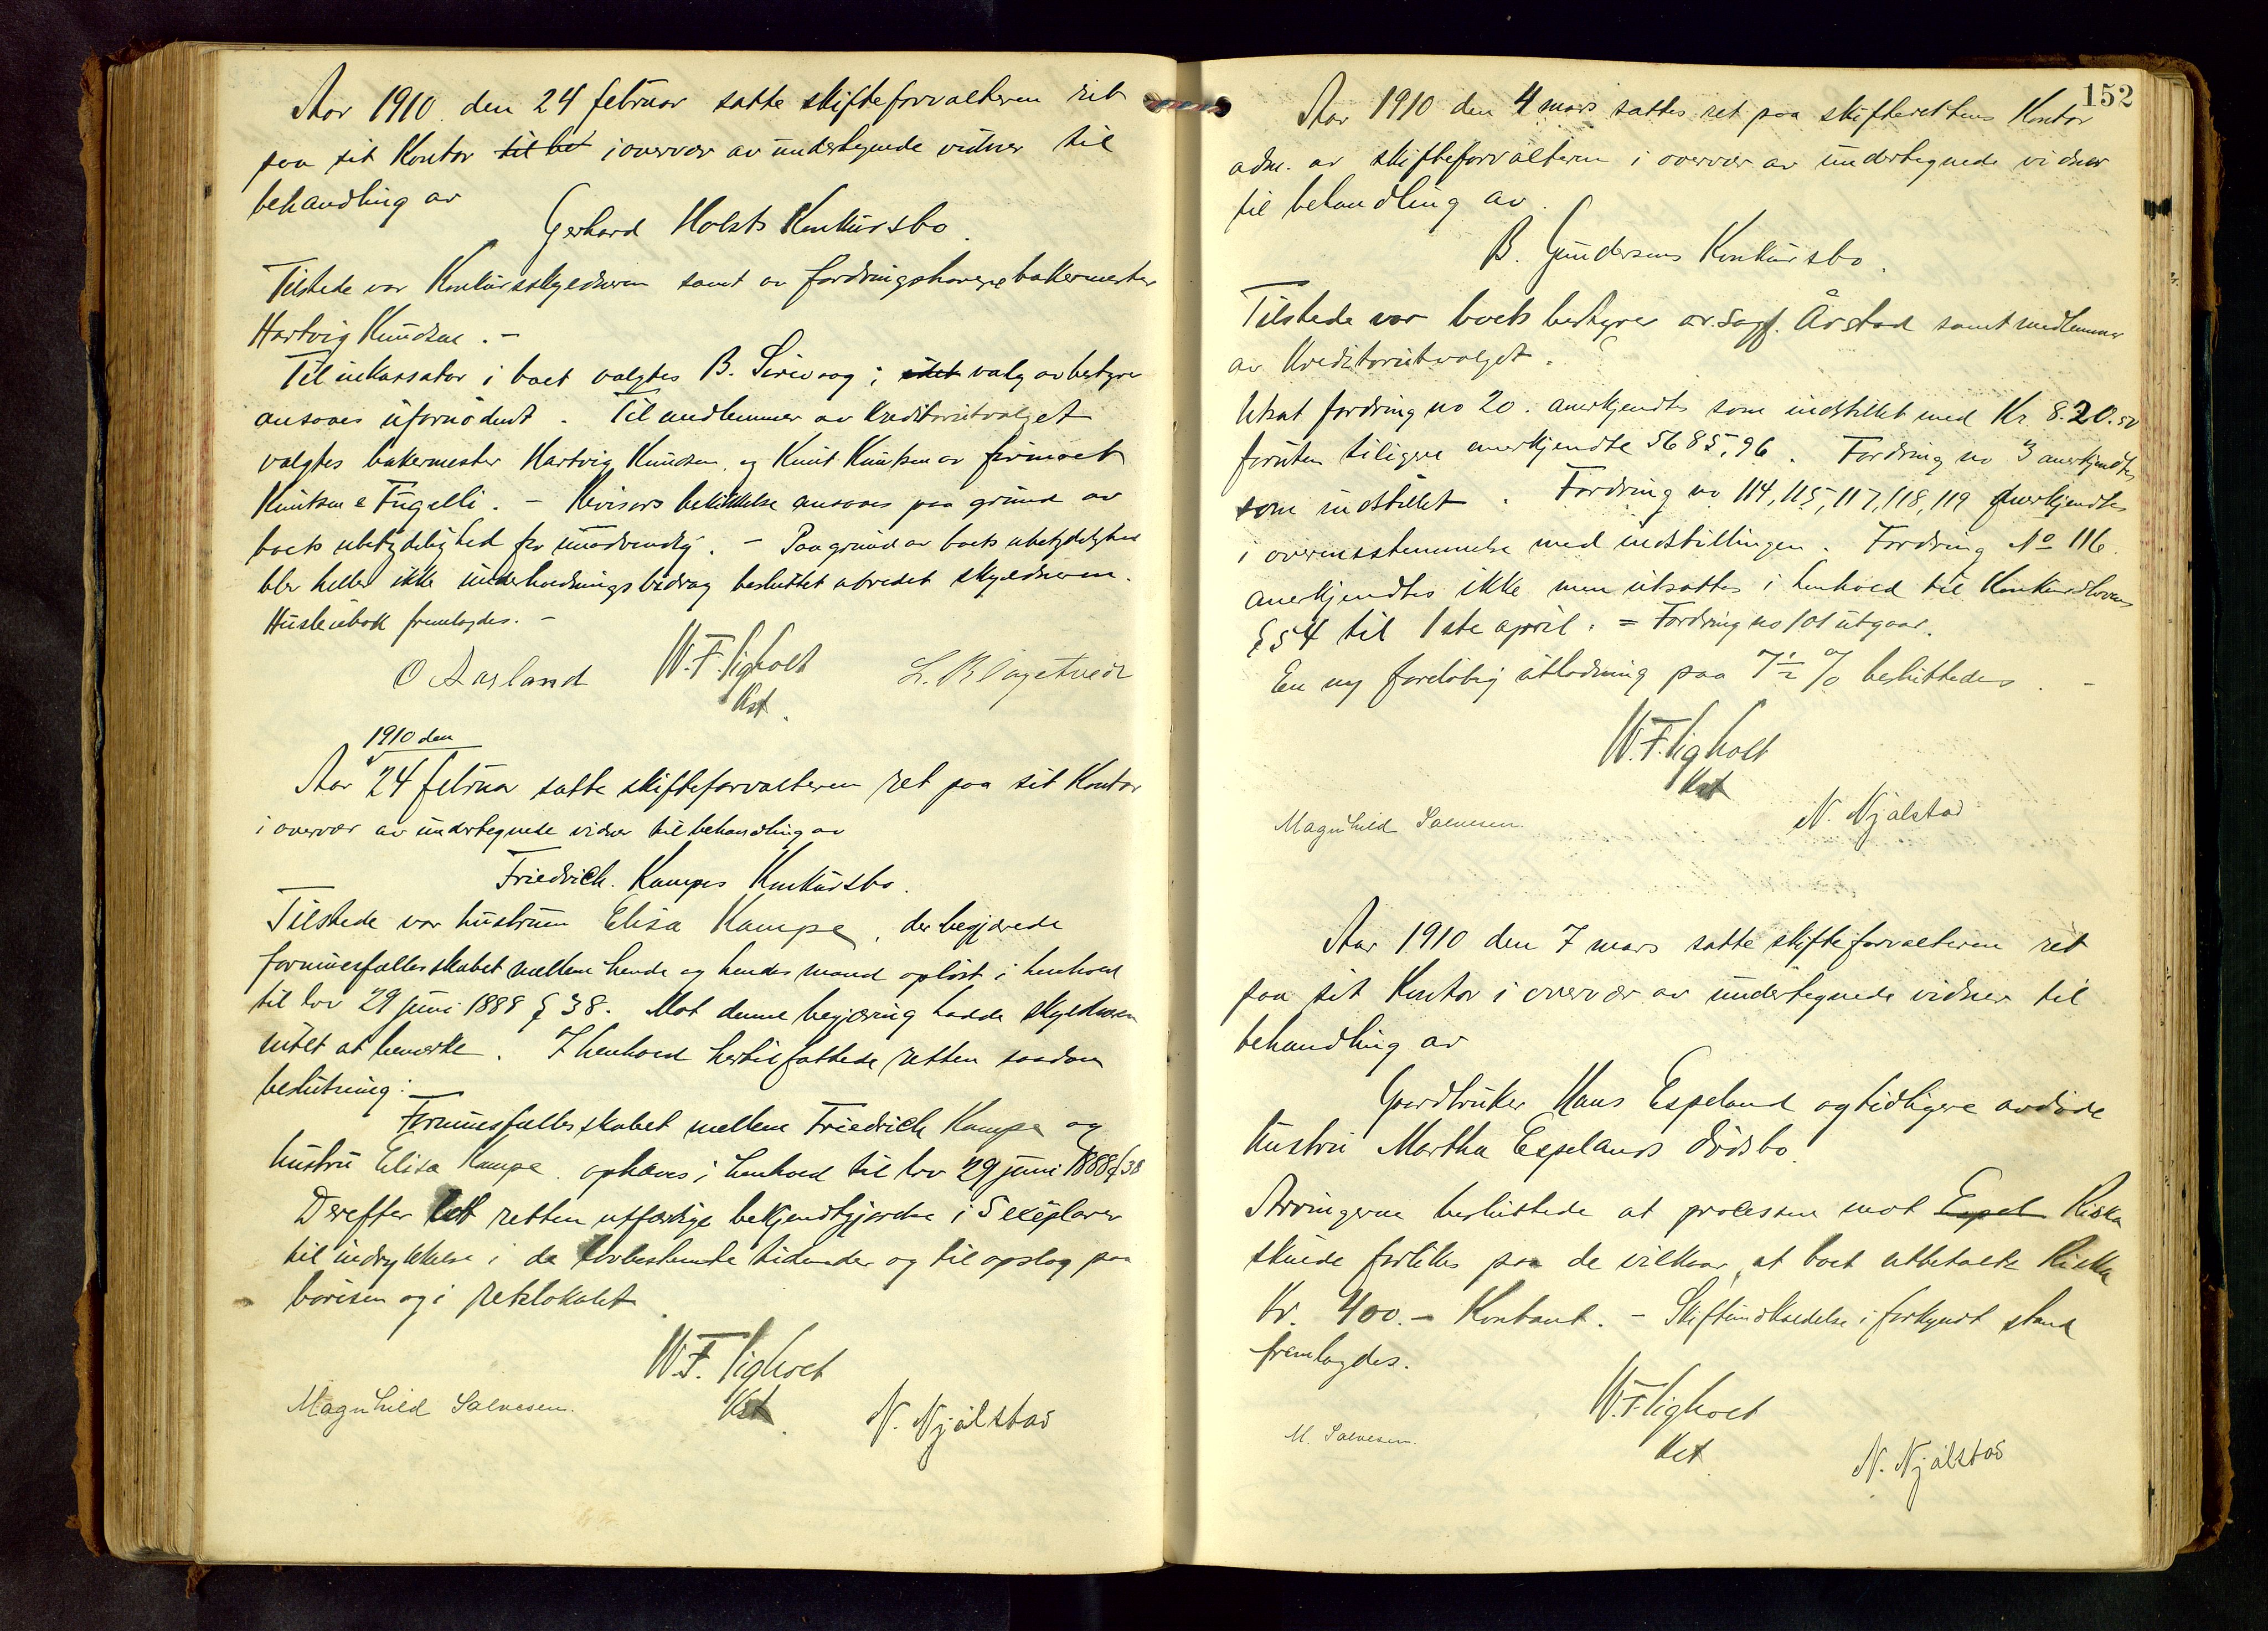 Aar 1910 den 24 februar satte skifteforvalteren ret
paa sit Kontor til bet i overvær av undertegnede vidner til
behandling av
Gerhard Holsts Konkursbo.
Tilstede var Konkursskyldneren samt av fordringshavere bakermester
Hartvig Knudsen. -
Til inkassator i boet valgtes B. Sirevaag; valg av bestyrer
ansaaes ufornødent. Til medlemmer av Kreditorutvalget
valgtes bakermester Hartvig Knudsen og Knut Knutsen av firmaet
Knutsen & Fugelli. - Revisors beskikkelse ansaaes paa grund av
boets ubetydelighed for unødvendig. - Paa grund av boets ubetydelighed
blev heller ikke underholdningsbidrag besluttet utredet skyldneren.
Husleiebok fremlagdes. -
O Aasland W. F. Ligholt L. B Vagetvedt
Kst.
1910 den
Aar 24 februar satte skifteforvalteren ret paa sit Kontor
i overvær av undertegnede vidner til behandling av
Friedrich Kampes Konkursbo.
Tilstede var hustruen Elisa Kampe, der begjærede
formuesfællesskabet mellem hende og hendes mand opløst i henhold
til lov 29 juni 1888 § 38. Mot denne begjæring hadde skyldneren
intet at bemerke. I henhold hertil fattede retten saadan
beslutning:
Formuesfællesskabet mellem Friedrich Kampe og
hustru Elisa Kampe ophæves i henhold til lov 29 juni 1888 § 38
Derefter lot retten utfærdige bekjendtgjørelse i 5 exeplarer
til indrykkelse i de lovbestemte tidender og til opslag paa
børsen og i retslokalet
W. F. Ligholt
Magnhild Salvesen. Kst. N. Njålstad
152
Aar 1910 den 4 mars sattes ret paa skifterettens Kontor
adm. av skifteforvalteren i overvær av undertegnede vidner
til behandling av
B. Gundersens Konkursbo.
Tilstede var boets bestyrer o.r.sagf. Årstad samt medlemmer
av Kreditorutvalget.
Utsat fordring no 20. anerkjendtes som indstillet med Kr. 8.20.50
foruten tiligere anerkjendte 5685,96. Fordring no 3 anerkjendtes
som indstillet. Fordring no 114, 115, 117, 118, 119 anerkjendtes
i overensstemmelse med indstillingen. Fordring No 116.
anerkjendtes ikke men utsattes i henhold til Konkurslovens
§ 54 til 1ste april. = Fordring no 101 utgaar.
En ny foreløbig utlodning paa 7 1/2 % besluttedes. -
W. F. Ligholt
Kst
Magnhild Salvesen. N. Njålstad
Aar 1910 den 7 mars satte skifteforvalteren ret
paa sit Kontor i overvær av undertegnede vidner til
behandling av
Gaardbruker Hans Espeland og tidligere avdøde
hustru Martha Espelands dødsbo.
Arvingerne besluttede at processen mot Espel Riska
skulde forlikes paa de vilkaar, at boet utbetalte Riska
Kr. 400.- Kontant. - Skifteindkaldelse i forkyndt stand
fremlagdes.
W. F. Ligholt
M. Salvesen. Kst N. Njålstad